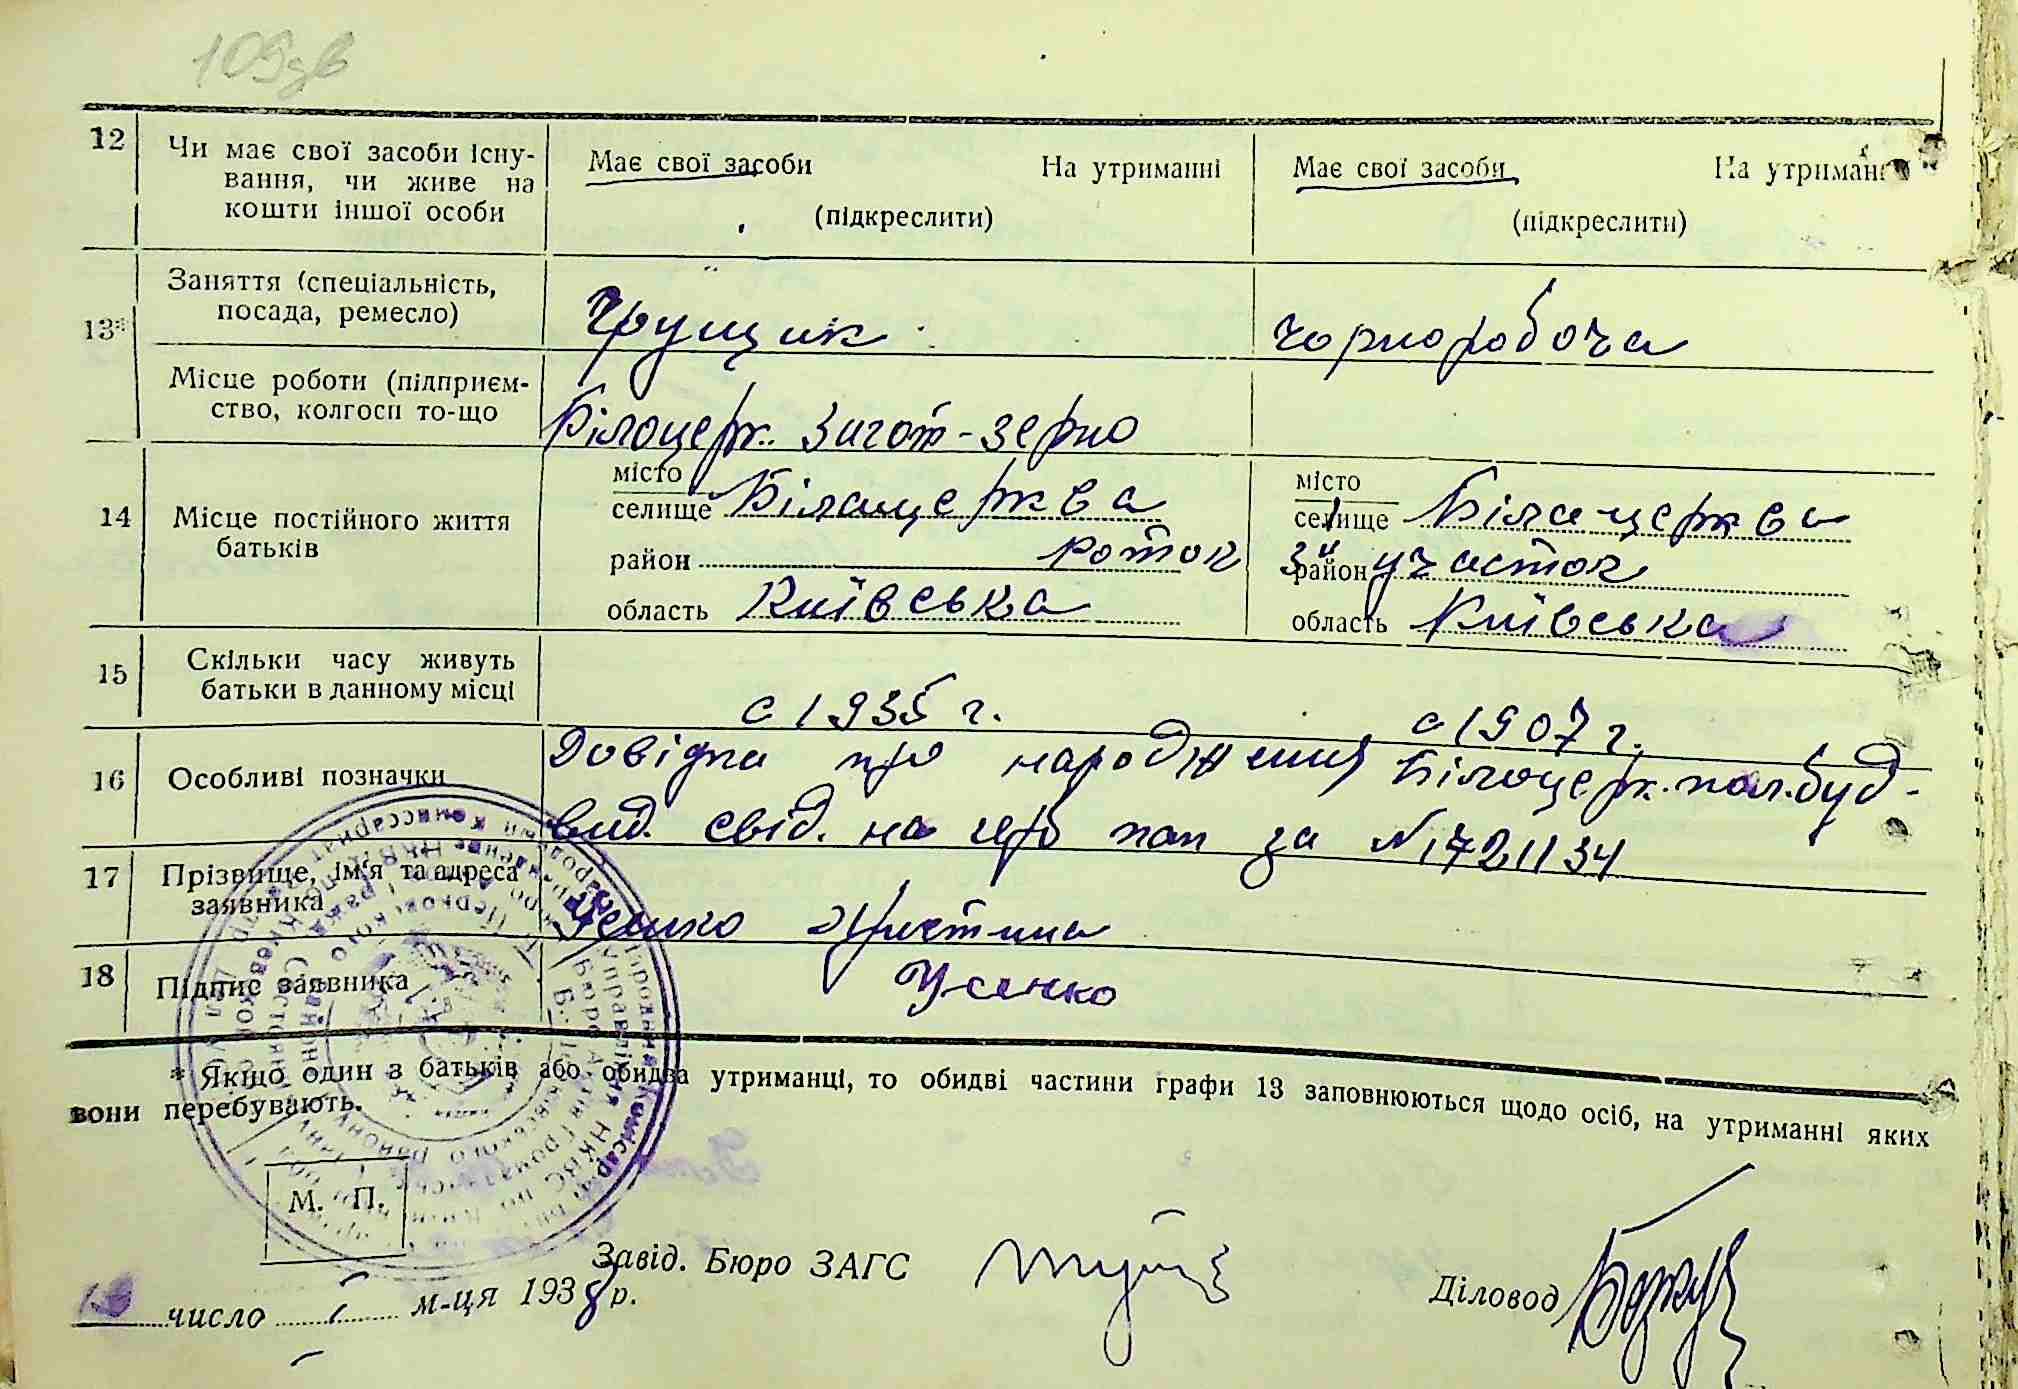 109зв
12
Чи має свої засоби існу-
вання, чи живе на
кошти іншої особи
Має свої засоби На утриманні
(підкреслити)
Має свої засоби На утриманні
(підкреслити)
13*
Заняття (спеціальність,
посада, ремесло)
Грущик
чорноробоча
Місце роботи (підприєм-
ство, колгосп то-що
Білоцерк. Загот-зерно
14
Місце постійного життя
батьків
місто
селище Білацерква
район роток
область Київська
місто
селище Біла церква
район 3й участок
область Київська
15
Скільки часу живуть
батьки в данному місці
с 1935 г.
с 1907 г.
16
Особливі позначки
Довідка про народження Білоцерк. пол. буд-
вид. свід. на за № 1721134
17
Прізвище, ім'я та адреса
заявника
Усенко Христина
18
Підпис заявника
Усенко
* Якщо один з батьків або обидва утриманці, то обидві частини графи 13 заповнюються щодо осіб, на утриманні яких
вони перебувають.
М. П.
Завід. Бюро ЗАГС
Діловод
число м-ця 1938 р.